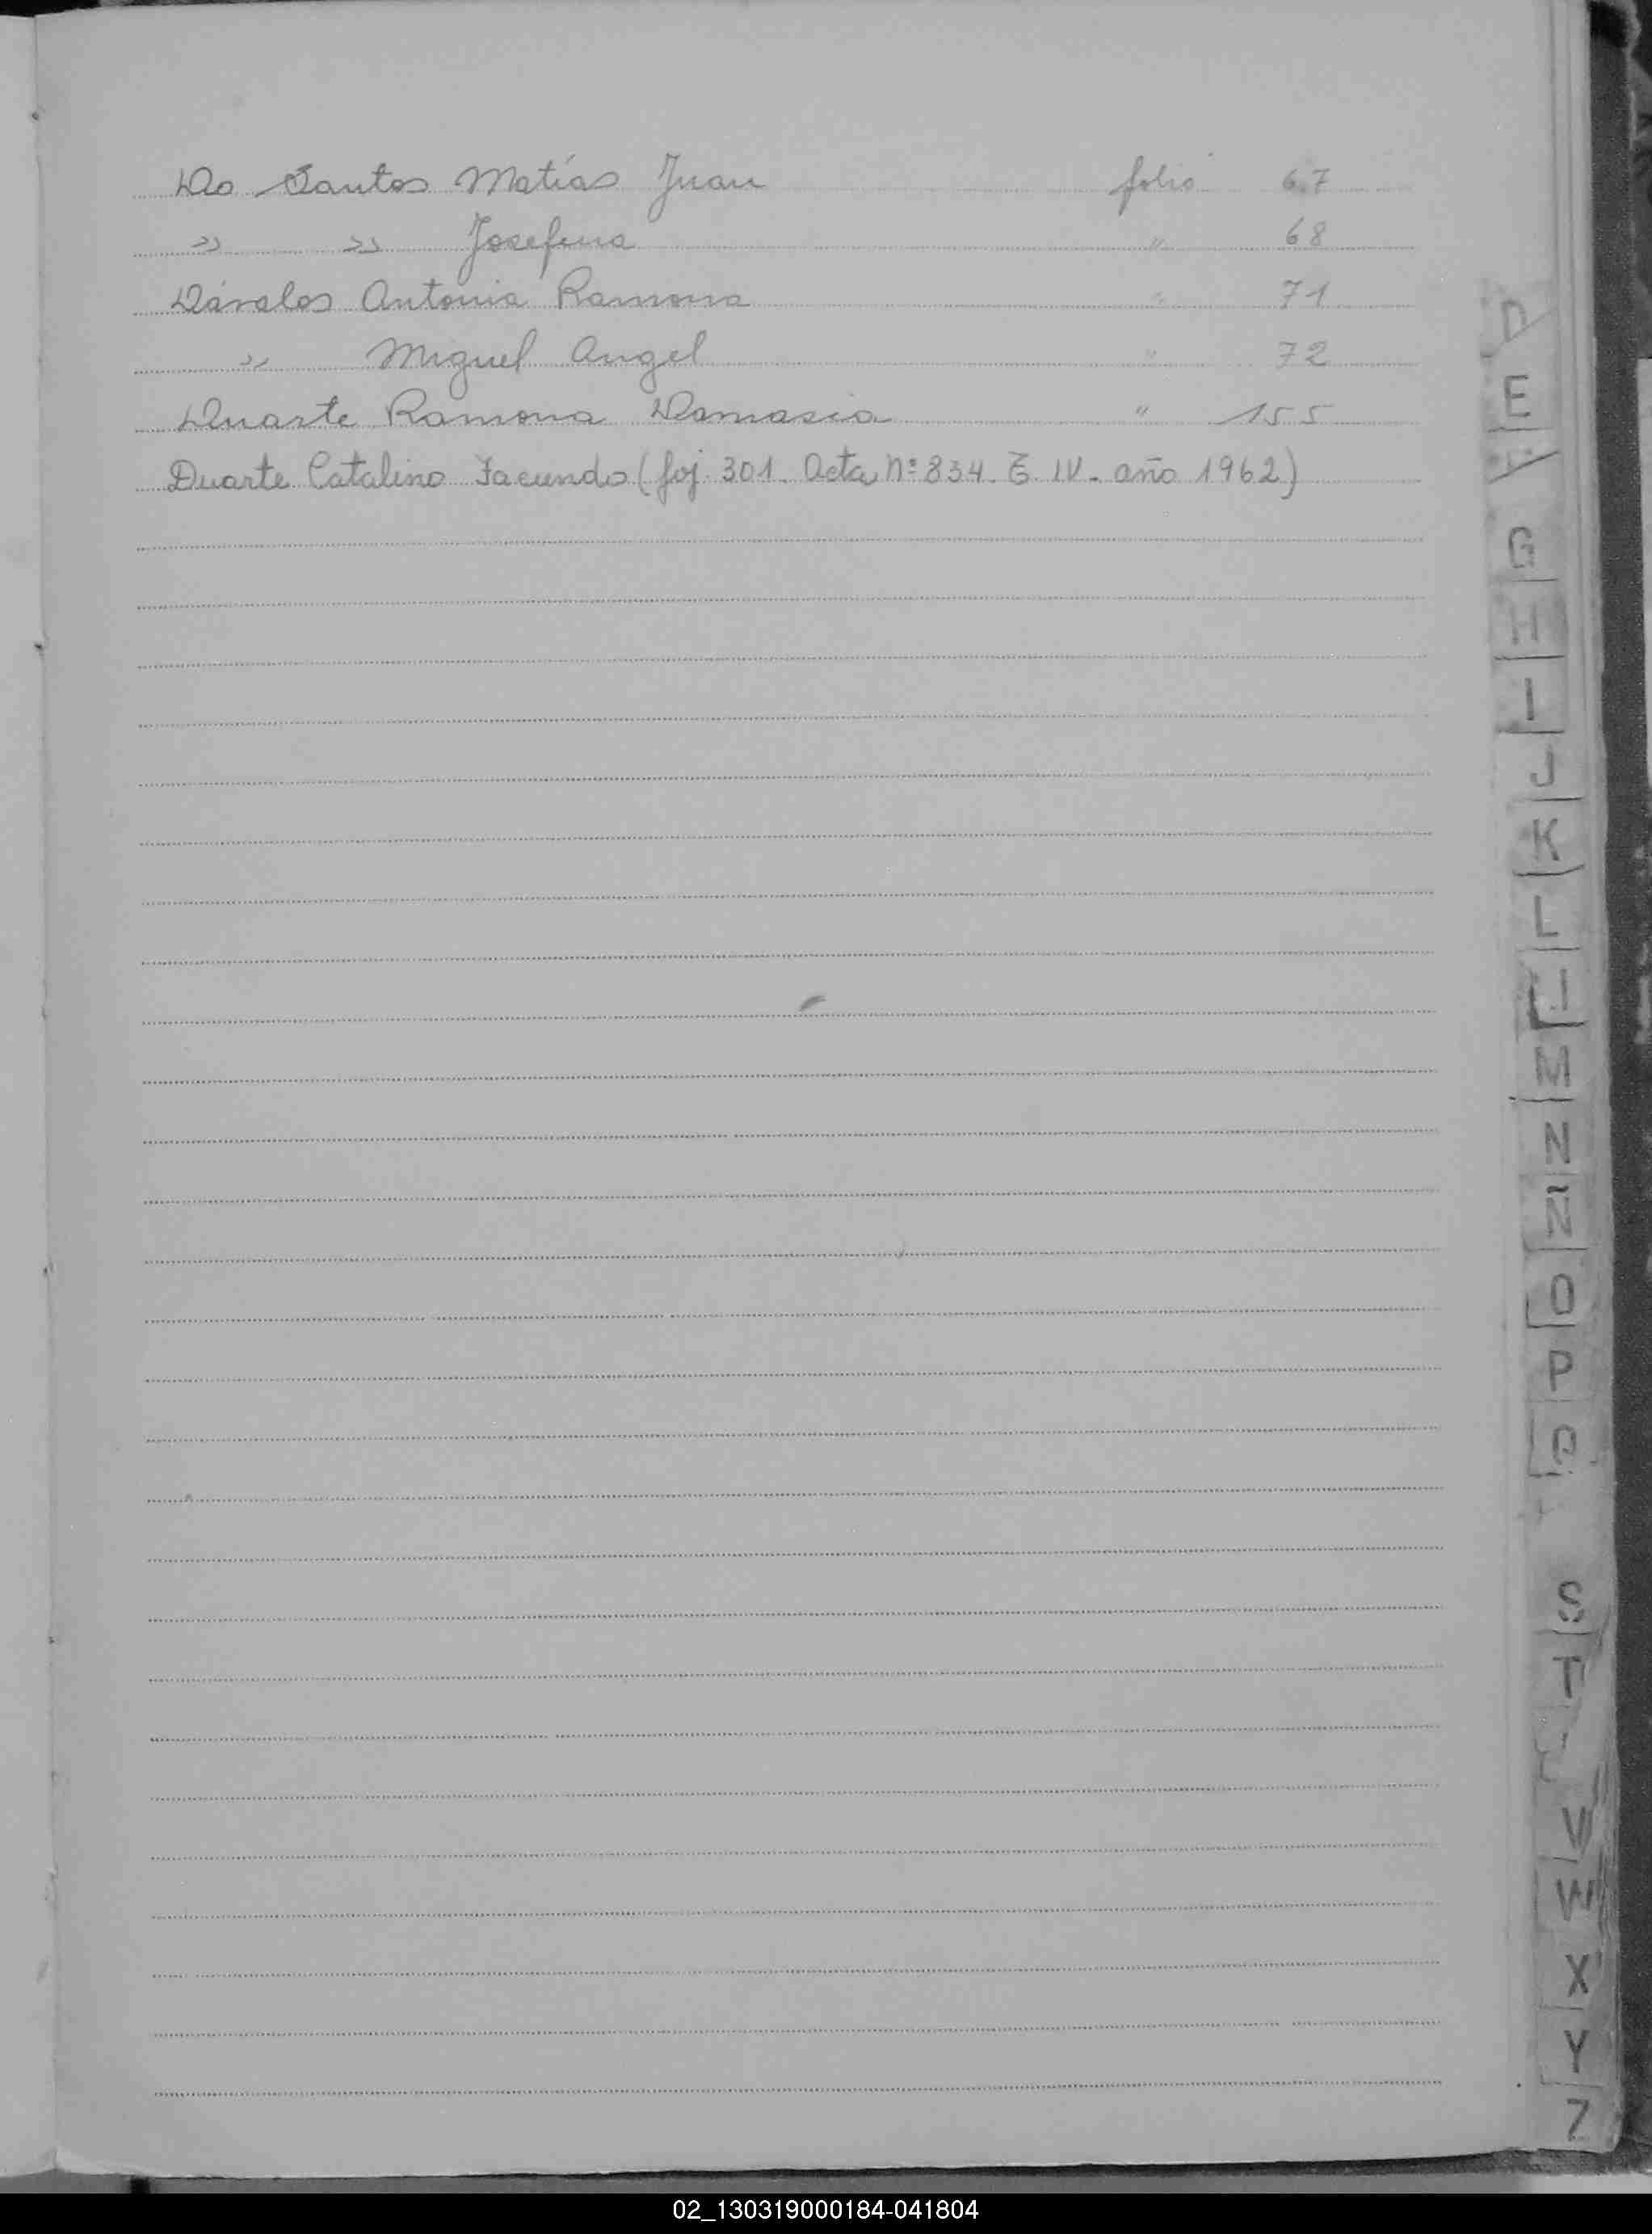 Do Santos Matías Juan folio 67
» » Josefina " 68
Dávalos Antonia Ramona " 71
» Miguel Angel " 72
Duarte Ramona Damasia " 155
Duarte Catalino Facundo (foj. 301. Acta Nº 834. T. IV. año 1962)
D
E
F
G
H
I
J
K
L
M
N
Ñ
O
P
Q
S
T
V
W
X
Y
Z
02_130319000184-041804